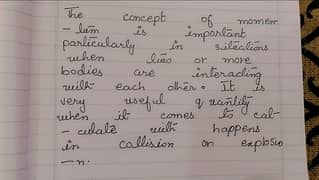 The concept of momen
- lum is important
particularly in siluations
when luo or more
bodies are interacting
with each other. It is
very useful quantity
when it comes to cal-
- culate with happens
in collision on explosio
-n.